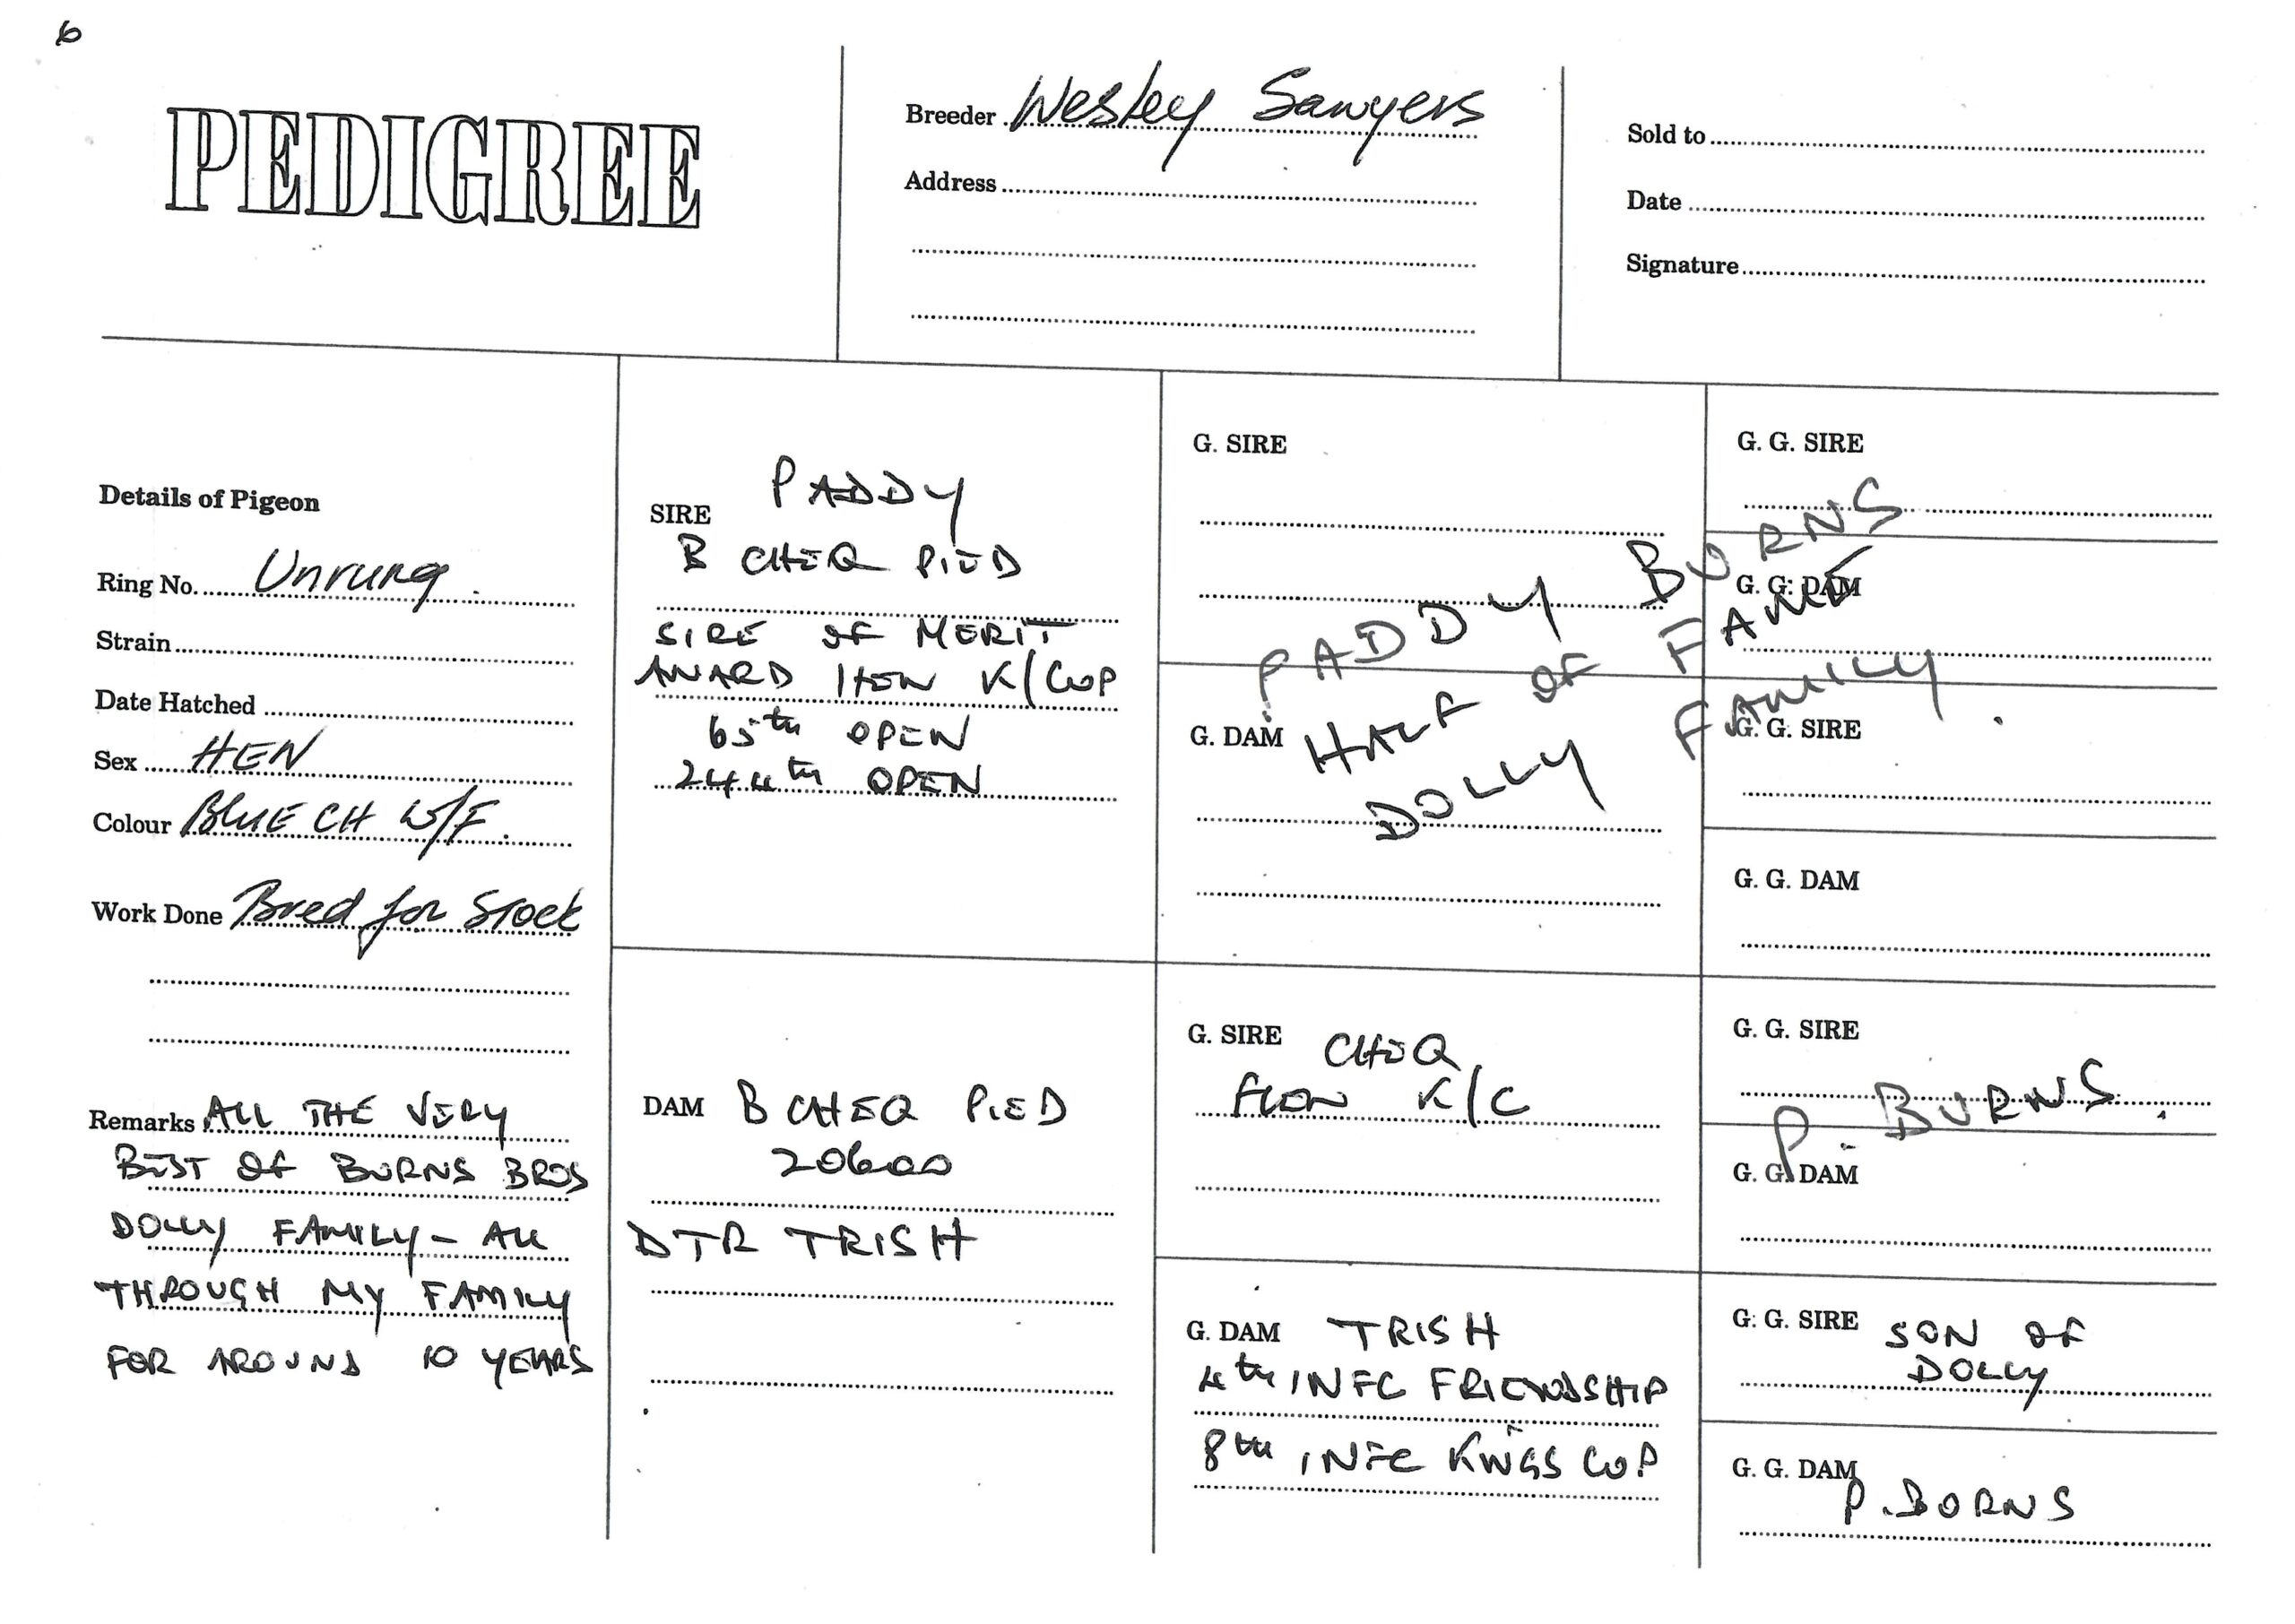 6
PEDIGREE
Breeder Wesley Sawyers
Address
Sold to
Date
Signature
Details of Pigeon
Ring No. Unrung.
Strain
Date Hatched
Sex HEN
Colour BLUE CH W/F.
Work Done Bred for Stock
Remarks ALL THE VERY
BEST OF BURNS BROS
DOLLY FAMILY - ALL
THROUGH MY FAMILY
FOR AROUND 10 YEARS
SIRE PADDY
B CHEQ PIED
SIRE OF MERIT
AWARD HEN K/CUP
65th OPEN
244th OPEN
DAM B CHEQ PIED
20600
DTR TRISH
G. SIRE
G. DAM
PADDY BURNS
HALF OF FAME
DOLLY FAMILY.
G. SIRE CHEQ
FLON K/C
G. DAM TRISH
4th INFC FRIENDSHIP
8th INFC KINGS CUP
G. G. SIRE
G. G. DAM
G. G. SIRE
G. G. DAM
G. G. SIRE
P. BURNS.
G. G. DAM
G. G. SIRE SON OF
DOLLY
G. G. DAM
P. BURNS